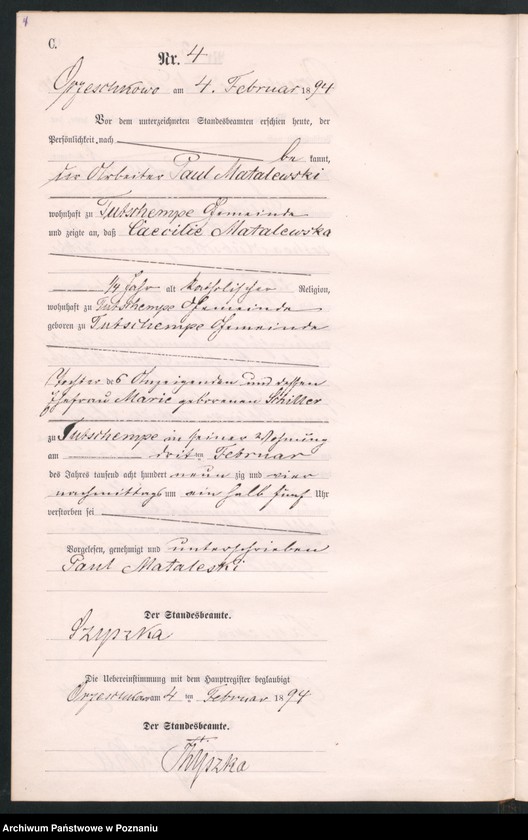 C.
Nr. 4
Orzeschkowo am 4. Februar 1894
Vor dem unterzeichneten Standesbeamten erschien heute, der
Persönlichkeit nach
be kannt,
der Arbeiter Paul Matalewski
wohnhaft zu Tutschempe Gemeinde
und zeigte an, daß Caecilie Matalewska
1/4 Jahr alt katholischer Religion,
wohnhaft zu Tutschempe Gemeinde
geboren zu Tutschempe Gemeinde
Tochter des Anzeigenden und dessen
Ehefrau Marie geborenen Schiller
zu Tutschempe in seiner Wohnung
am dritten Februar
des Jahres tausend acht hundert neun zig und vier
nachmittags um ein halb fünf Uhr
verstorben sei
Vorgelesen, genehmigt und unterschrieben
Paul Mataleski
Der Standesbeamte.
Szyszka
Die Uebereinstimmung mit dem Hauptregister beglaubigt
am 4 ten Februar 1894
Der Standesbeamte.
Szyszka
Archiwum Państwowe w Poznaniu